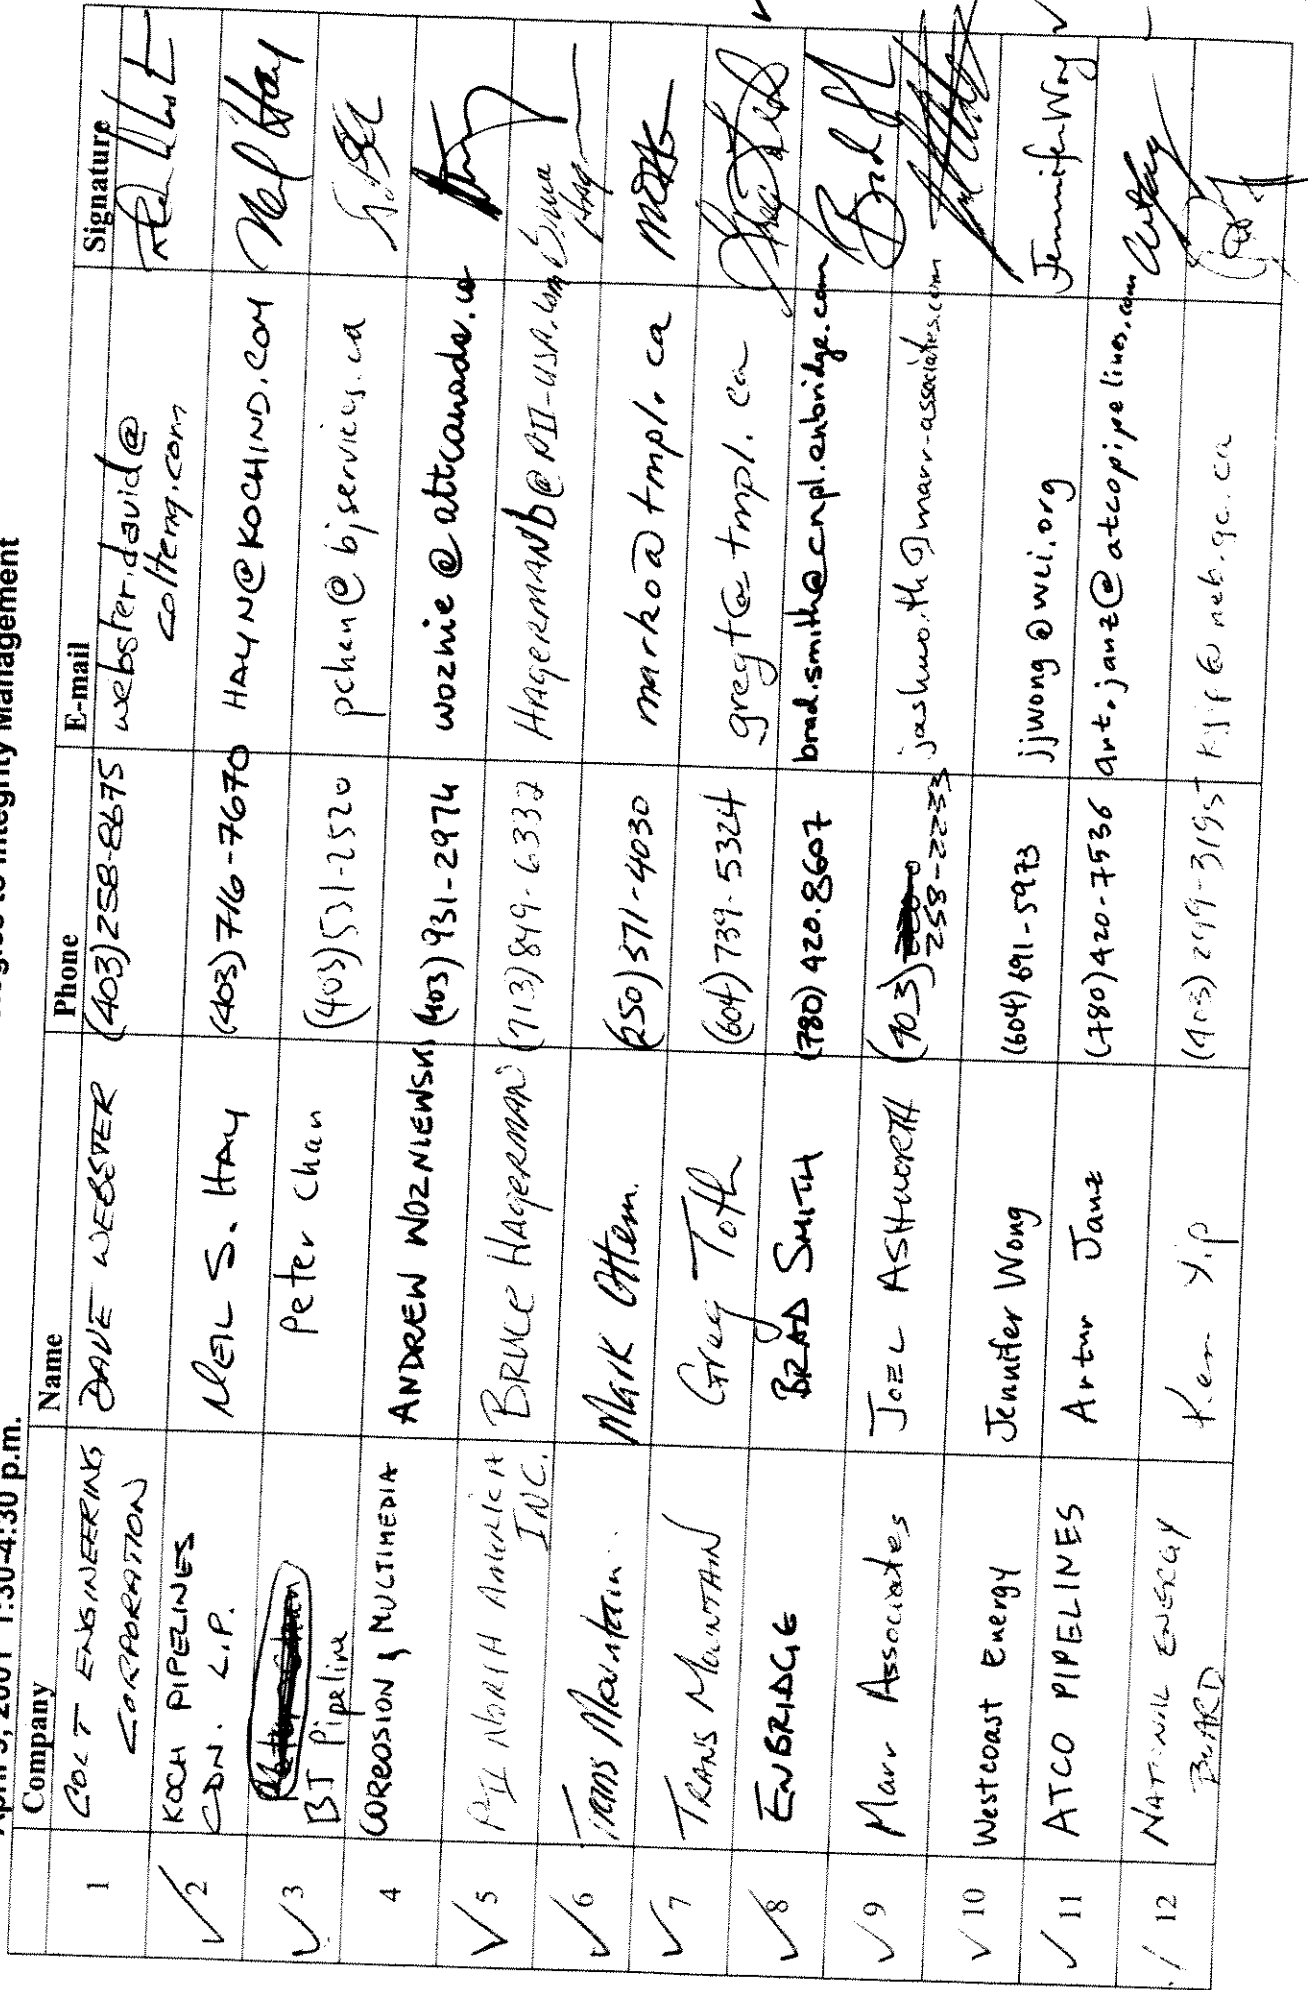 Integrity Management
2001 1:30-4:30 p.m.
Company Name Phone E-mail Signature
1 COLT ENGINEERING DAVE WEBSTER (403)258-8675 webster.david@
CORPORATION colteng.com
2 KOCH PIPELINES NEIL S. HAY (403)716-7670 HAYN@KOCHIND.COM Neil Hay
CDN. L.P.
3 BJ Pipeline Peter Chan (403)531-2520 pchan@bjservices.ca
4 CORROSION MULTIMEDIA ANDREW WOZNIEWSKI (403) 931-2974 woznie@attcanada.ca
5 PII NORTH AMERICA BRUCE HAGERMAN (713)849-6332 HAGERMANb@PII-USA.com Bruce
INC. Hag
6 Trans Mountain Mark Ottem. (250)371-4030 marko@tmpl.ca
7 TRANS MOUNTAIN Greg Toth (604)739-5324 gregt@tmpl.ca
8 ENBRIDGE BRAD SMITH (780)420.8607 brad.smith@cnpl.enbridge.com
9 Marr Associates JOEL ASHWORTH (403) jashworth@marr-associates.com
258-2233
10 Westcoast Energy Jennifer Wong (604)691-5973 jjwong@wei.org Jennifer Wong
11 ATCO PIPELINES Artur Janz (780)420-7536 art.janz@atcopipelines.com
12 NATIONAL ENERGY Ken Yip (403)299-3195 kyip@neb.gc.ca
BOARD